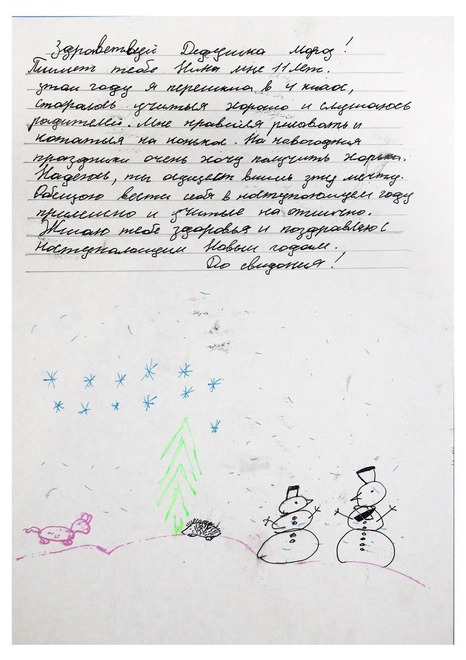 Здравствуй Дедушка Мороз!
Пишет тебе Нина мне 11 лет.
этом году я перешла в 4 класс,
стараюсь учиться хорошо и слушаюсь
родителей. Мне нравится рисовать и
кататься на коньках. На новогодния
праздники очень хочу получить хорька.
Надеюсь, ты осуществишь эту мечту.
Обещаю вести себя в наступающем году
прилежно и учиться на отлично.
Желаю тебе здоровья и поздравляю с
наступающим Новым годом.
До свидания!